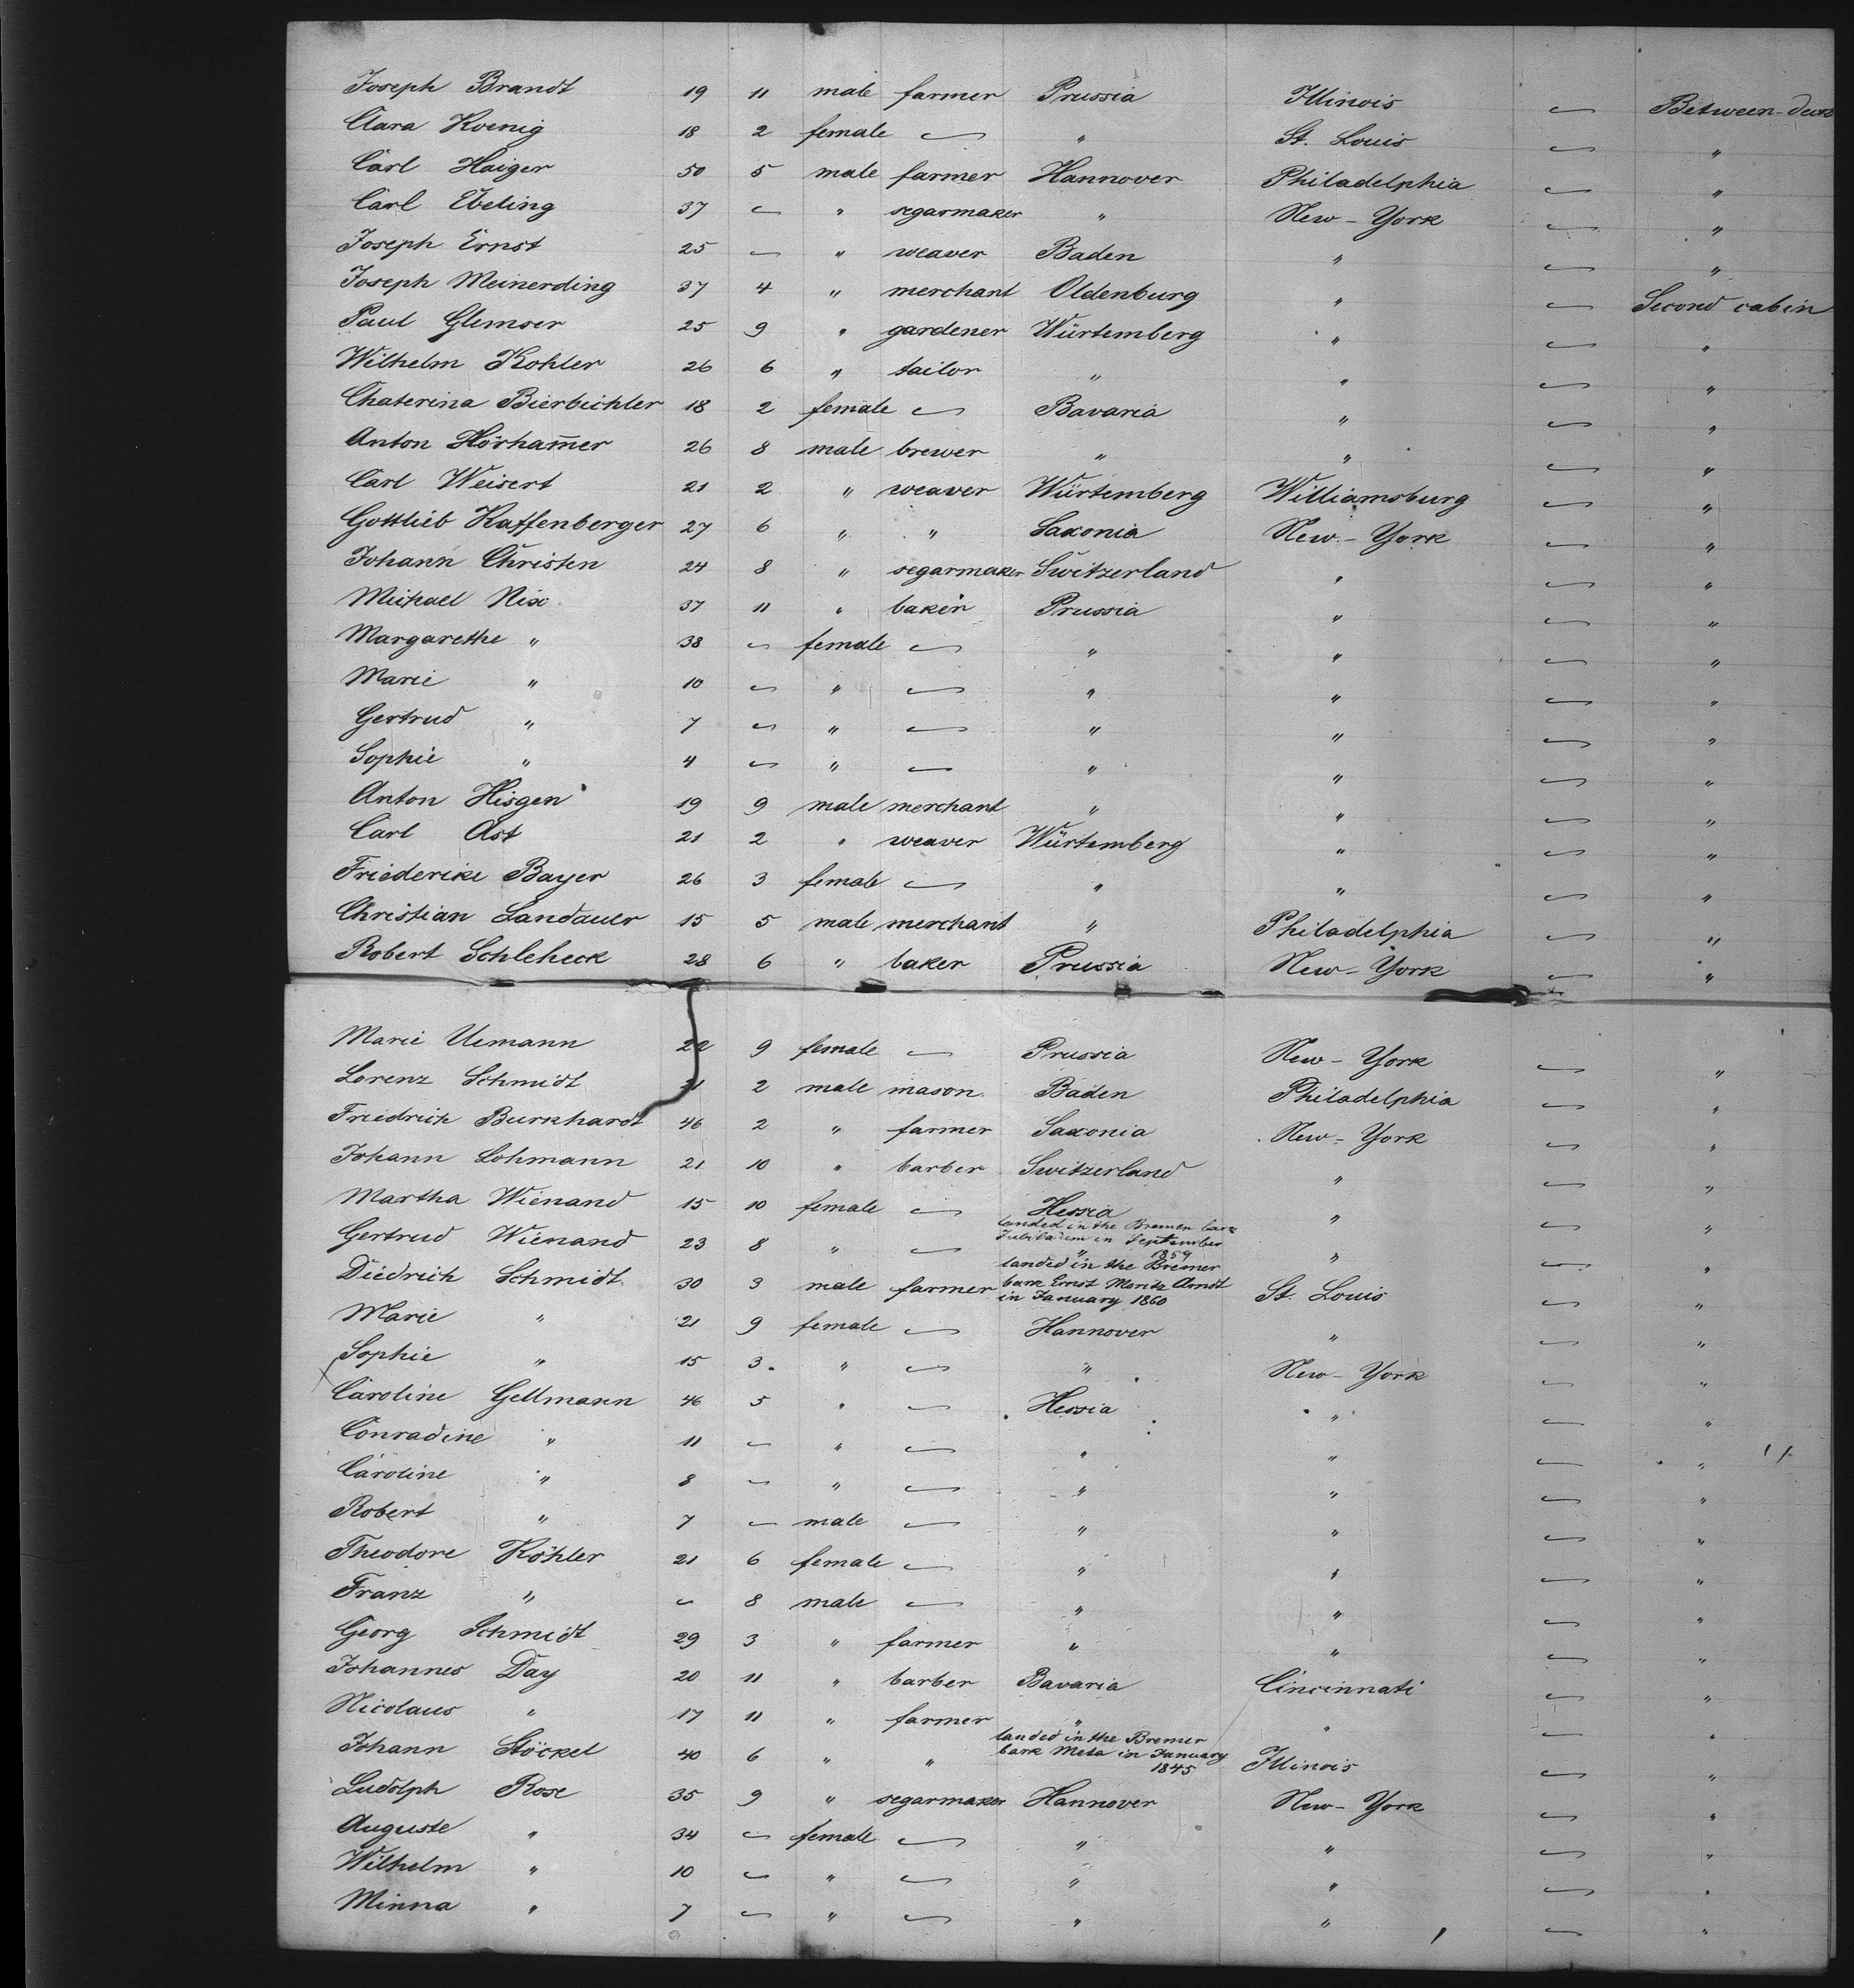 Joseph Brandt 19 11 male farmer Prussia Illinois – Between-decks
Clara Koenig 18 2 female – " St. Louis – "
Carl Haiger 50 5 male farmer Hannover Philadelphia – "
Carl Ebeling 37 – " segarmaker " New-York – "
Joseph Ernst 25 – " weaver Baden " – "
Joseph Meinerding 37 4 " merchant Oldenburg " – Second cabin
Paul Glemser 25 9 " gardener Würtemberg " – "
Wilhelm Kohler 26 6 " tailor " " – "
Chaterina Bierbichler 18 2 female – Bavaria " – "
Anton Hörham̅er 26 8 male brewer " " – "
Carl Weisert 21 2 " weaver Würtemberg Williamsburg – "
Gottlieb Kaffenberger 27 6 " " Saxonia New-York – "
Johann Christen 24 8 " segarmaker Switzerland " – "
Michael Nix 37 11 " baker Prussia " – "
Margarethe " 38 – female – " " – "
Marie " 10 – " – " " – "
Gertrud " 7 – " – " " – "
Sophie " 4 – " – " " – "
Anton Hisgen 19 9 male merchant " " – "
Carl Ast 21 2 " weaver Würtemberg " – "
Friederike Bayer 26 3 female – " " – "
Christian Landauer 15 5 male merchant " Philadelphia – "
Robert Schleheck 28 6 " baker Prussia New-York – "
Marie Uemann 22 9 female – Prussia New-York – "
Lorenz Schmidt 2 male mason Baden Philadelphia – "
Friedrich Burkhardt 46 2 " farmer Saxonia New-York – "
Johann Lohmann 21 10 " barber Switzerland " – "
Martha Wienand 15 10 female – Hessia " – "
landed in the Bremen bark
Jubiläum in September
1859
Gertrud Wienand 23 8 " – " " – "
landed in the Bremer
bark Ernst Moritz Arndt
in January 1860
Diedrich Schmidt 30 3 male farmer St. Louis – "
Marie " 21 9 female – Hannover " – "
Sophie " 15 3 " – " New-York – "
Caroline Gellmann 46 5 " – Hessia " – "
Conradine " 11 – " – " " – "
Caroline " 8 – " – " " – "
Robert " 7 – male – " " – "
Theodore Köhler 21 6 female – " " – "
Franz " – 8 male – " " – "
Georg Schmidt 29 3 " farmer " " – "
Johannes Day 20 11 " barber Bavaria Cincinnati – "
Nicolaus " 17 11 " farmer " " – "
landed in the Bremer
bark Meta in January
1845
Johann Stöckel 40 6 " " Illinois – "
Ludolph Rose 35 9 " segarmaker Hannover New-York – "
Auguste " 34 – female – " " – "
Wilhelm " 10 – " – " " – "
Minna " 7 – " – " " – "